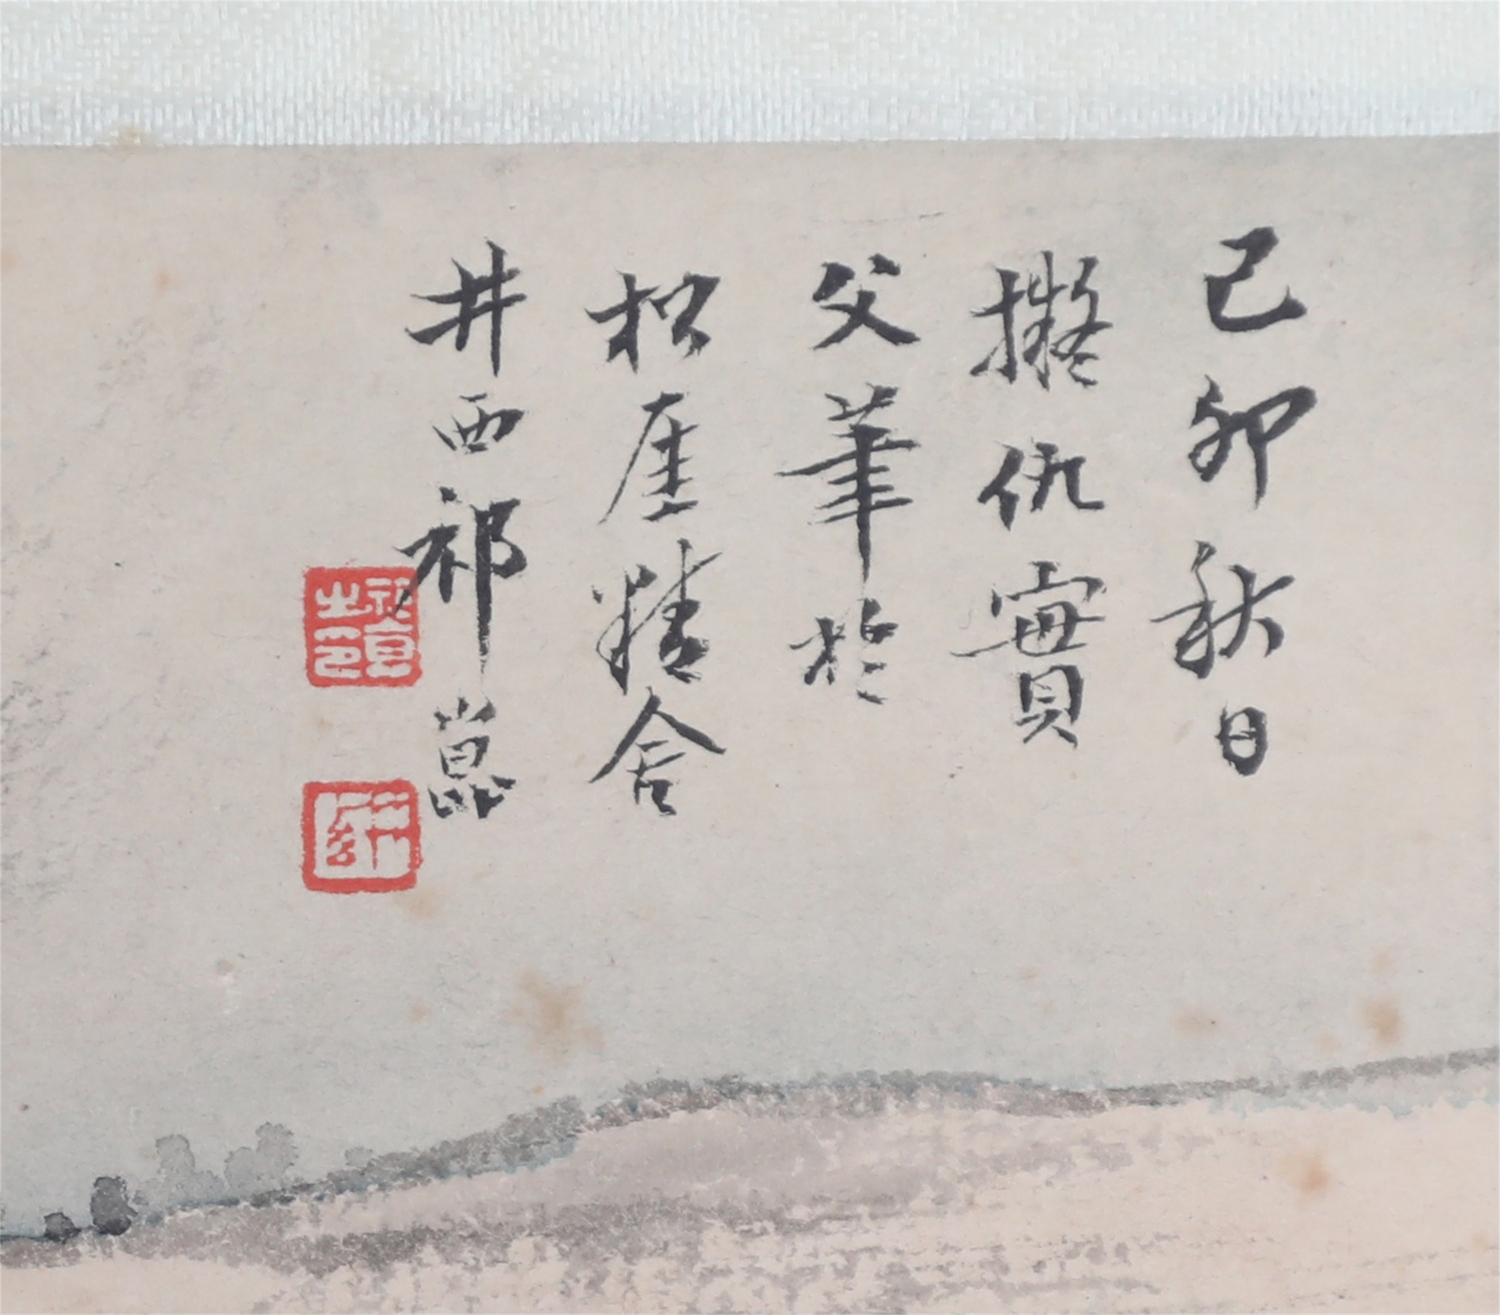 己卯秋日
擬仇實
父筆於
松厓精舍
井西祁崑